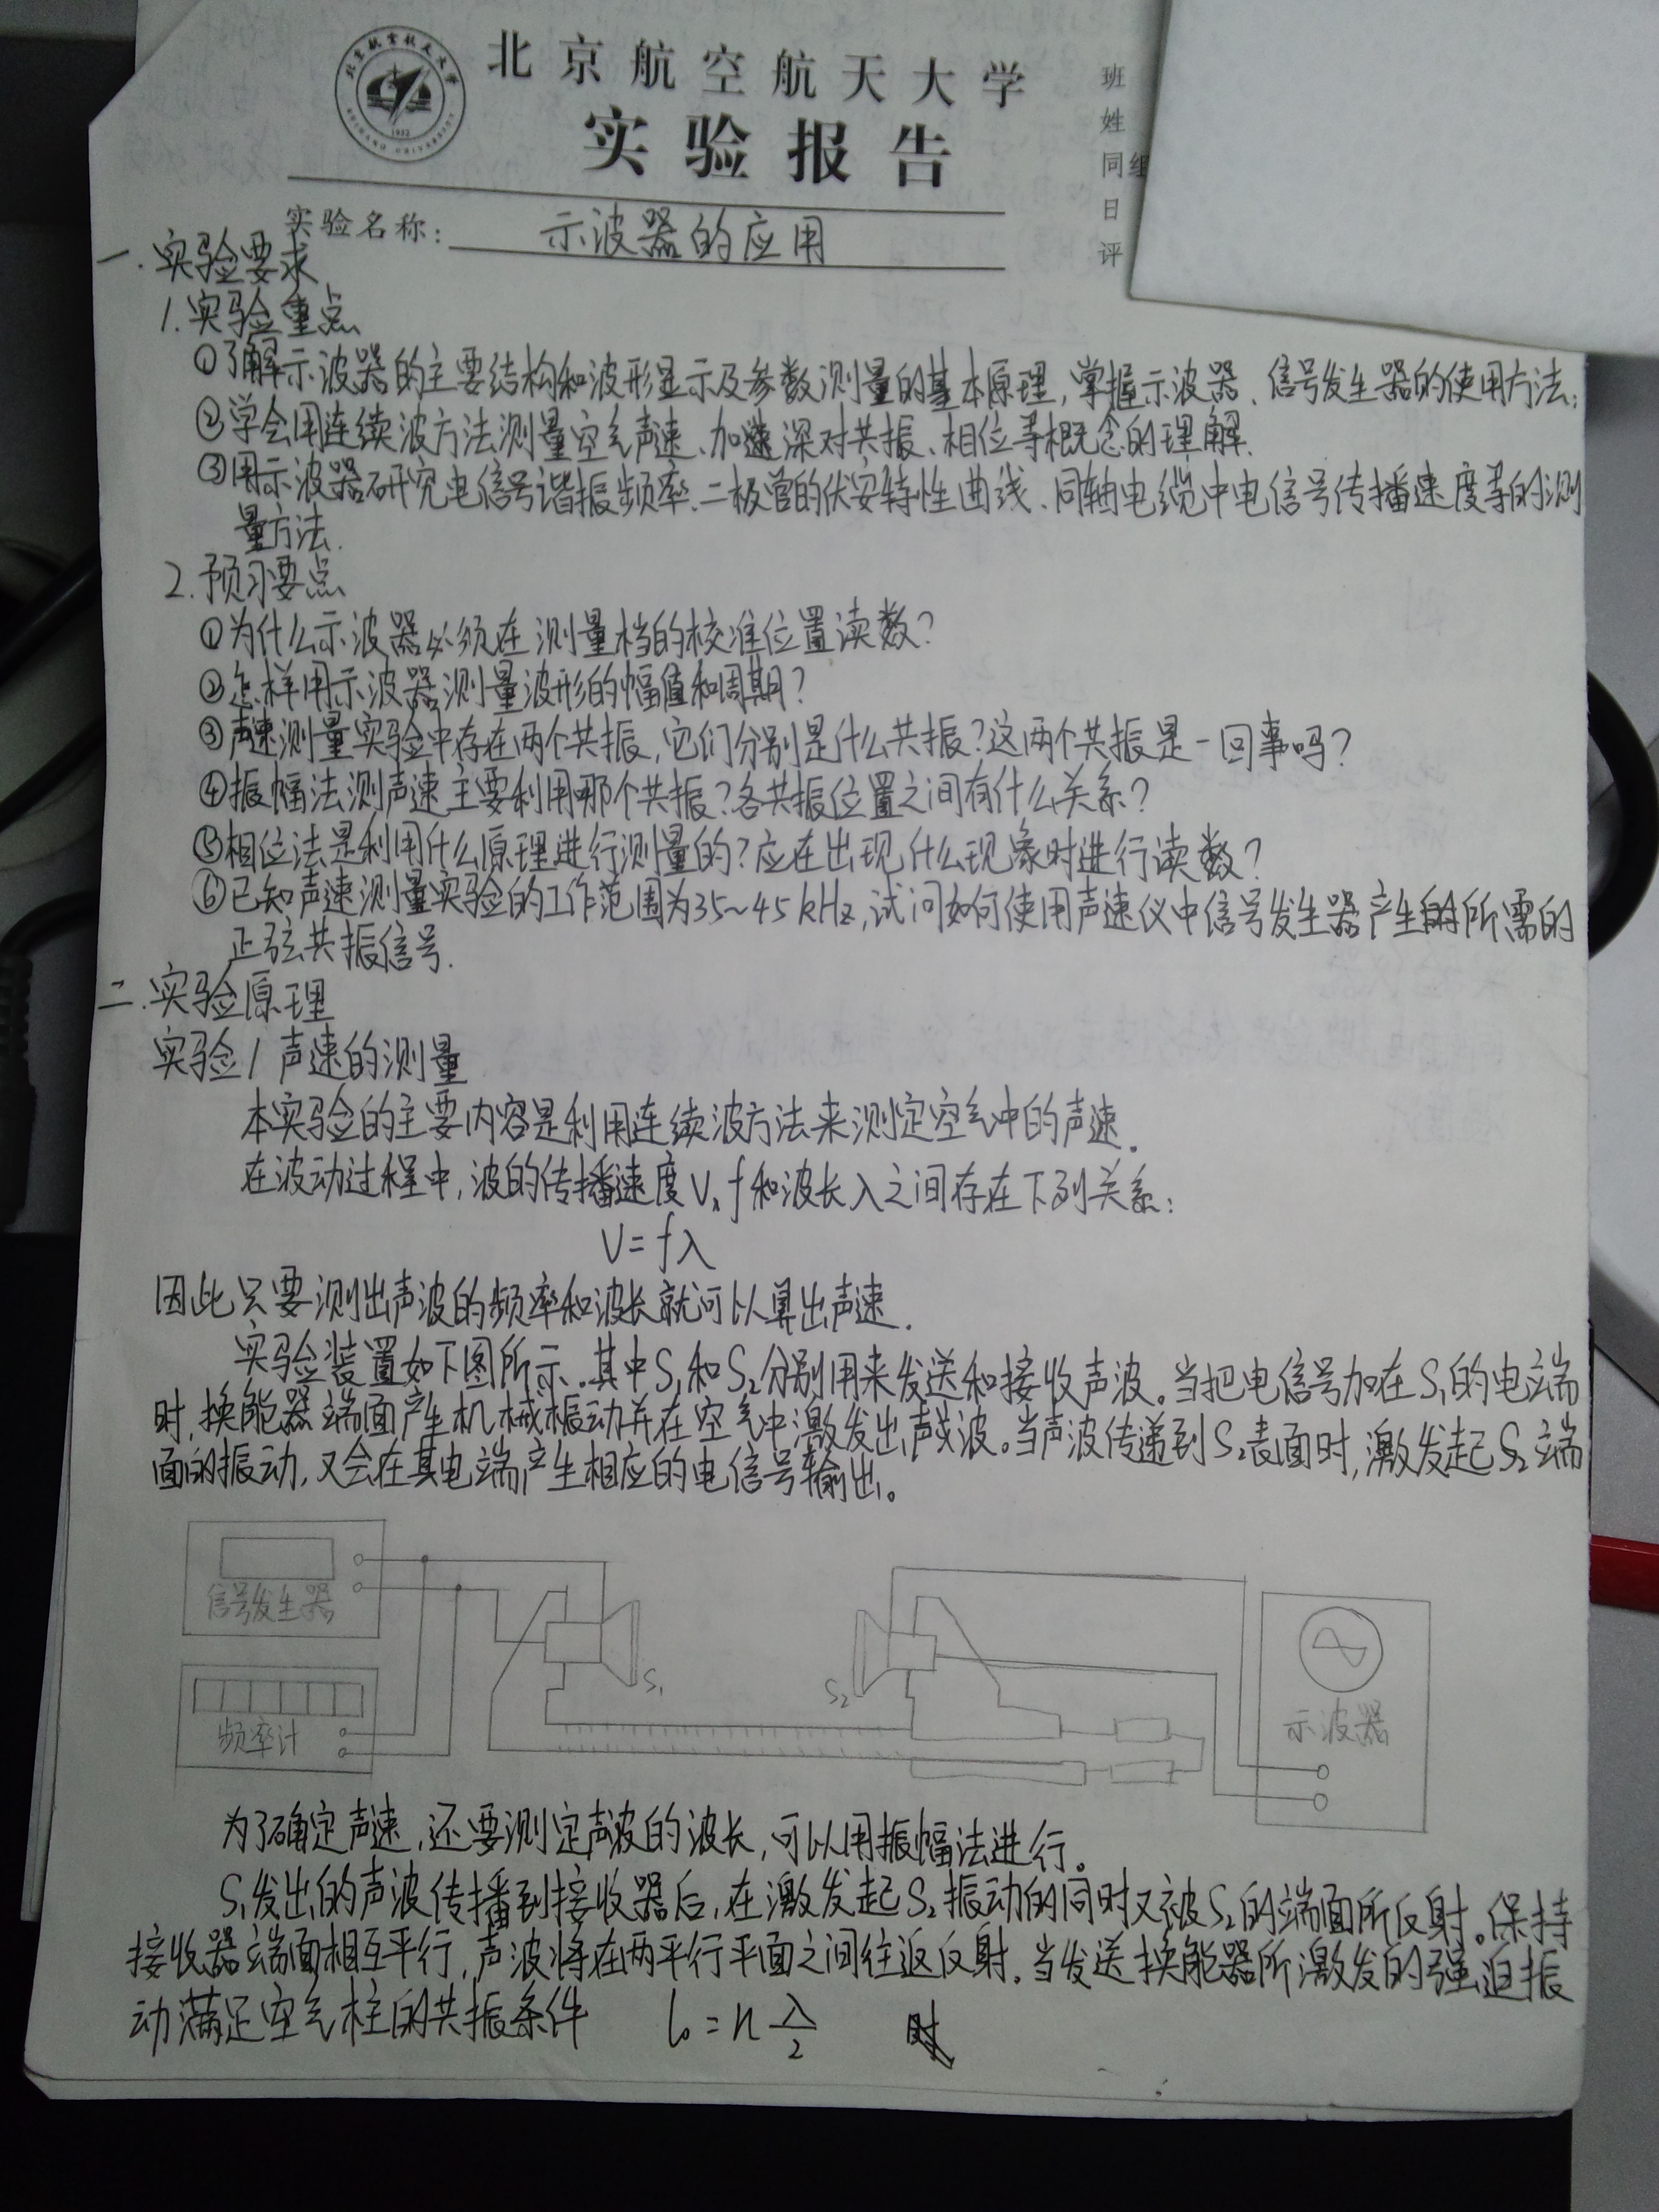 北京航空航天大学
实验报告
班
姓
同组
日
评
实验名称: 示波器的应用
一.实验要求
1.实验重点
①了解示波器的主要结构和波形显示及参数测量的基本原理,掌握示波器、信号发生器的使用方法;
②学会用连续波方法测量空气声速、加速深对共振、相位等概念的理解.
③用示波器研究电信号谐振频率、二极管的伏安特性曲线、同轴电缆中电信号传播速度等的测
量方法.
2.预习要点
①为什么示波器必须在测量档的校准位置读数?
②怎样用示波器测量波形的幅值和周期?
③声速测量实验中存在两个共振,它们分别是什么共振?这两个共振是一回事吗?
④振幅法测声速主要利用哪个共振?各共振位置之间有什么关系?
⑤相位法是利用什么原理进行测量的?应在出现什么现象时进行读数?
⑥已知声速测量实验的工作范围为35~45kHz,试问如何使用声速仪中信号发生器产生的所需的
正弦共振信号.
二.实验原理
实验1 声速的测量
本实验的主要内容是利用连续波方法来测定空气中的声速.
在波动过程中,波的传播速度V、f和波长λ之间存在下列关系:
V=fλ
因此只要测出声波的频率和波长就可以算出声速.
实验装置如下图所示.其中S₁和S₂分别用来发送和接收声波。当把电信号加在S₁的电端
时,换能器端面产生机械振动并在空气中激发出声波。当声波传递到S₂表面时,激发起S₂端
面的振动,又会在其电端产生相应的电信号输出。
信号发生器
频率计
S₁
S₂
示波器
为了确定声速,还要测定声波的波长,可以用振幅法进行。
S₁发出的声波传播到接收器后,在激发起S₂振动的同时又被S₂的端面所反射。保持
接收器端面相互平行,声波将在两平行平面之间往返反射.当发送换能器所激发的强迫振
动满足空气柱的共振条件 l₀=n λ/2